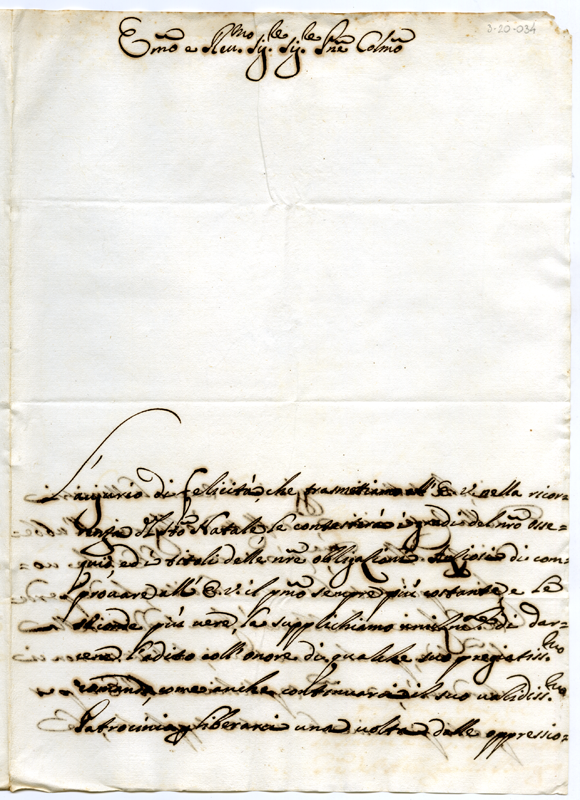 3-20-034
Emo e Reu.mo Sig.re Sig.re Pne Colmo
L'augurio di felicità che trasmetiamo all' E. V. nella ricor-
renza del Sto Natale le contesterà i gradi del nro osse-
quio ed i titoli delle nre obligazioni. Ansiosi di com-
provare all' E. V. il pmo sempre più costante e le
seconde più vere, la supplichiamo umilm.te di dar-
cene l'adito coll' onore di qualche suo pregiatiss.mo
comando, come anche continuarci il suo validiss.mo
Patrocinio liberarci una volta dalle oppressio-